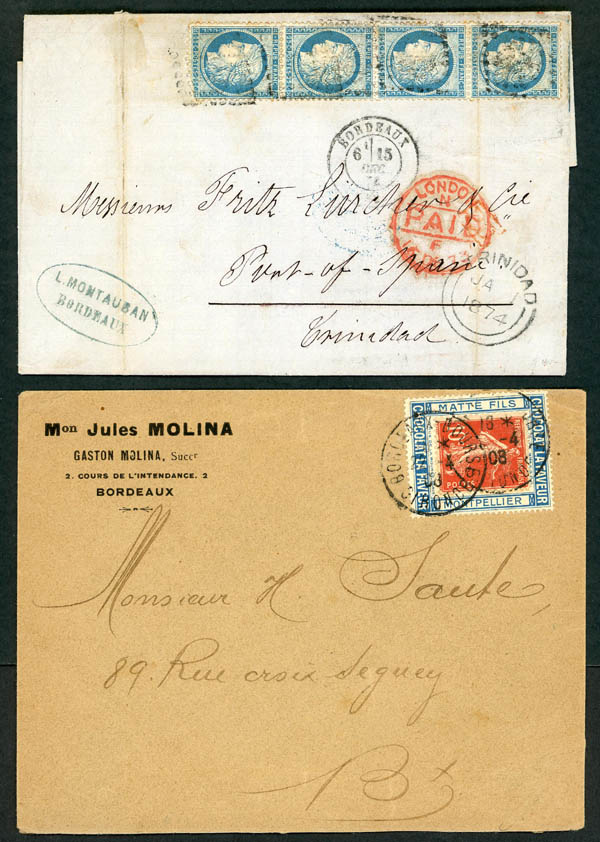 BORDEAUX
6 15
DEC
LONDON
PAID
Messieurs Fritz Lurcher & Cie
Port-of-Spain
Trinidad
TRINIDAD
JA
1874
L. MONTAUBAN
BORDEAUX
Mon Jules MOLINA
GASTON MOLINA, Succr
2. COURS DE L'INTENDANCE. 2
BORDEAUX
MATTE FILS
CHOCOLAT LA FAVEUR
CHOCOLAT LA FAVEUR
MONTPELLIER
POSTES
BORDEAUX
GIRONDE
08
Monsieur H. Saute,
89. Rue croix Seguey
Bx